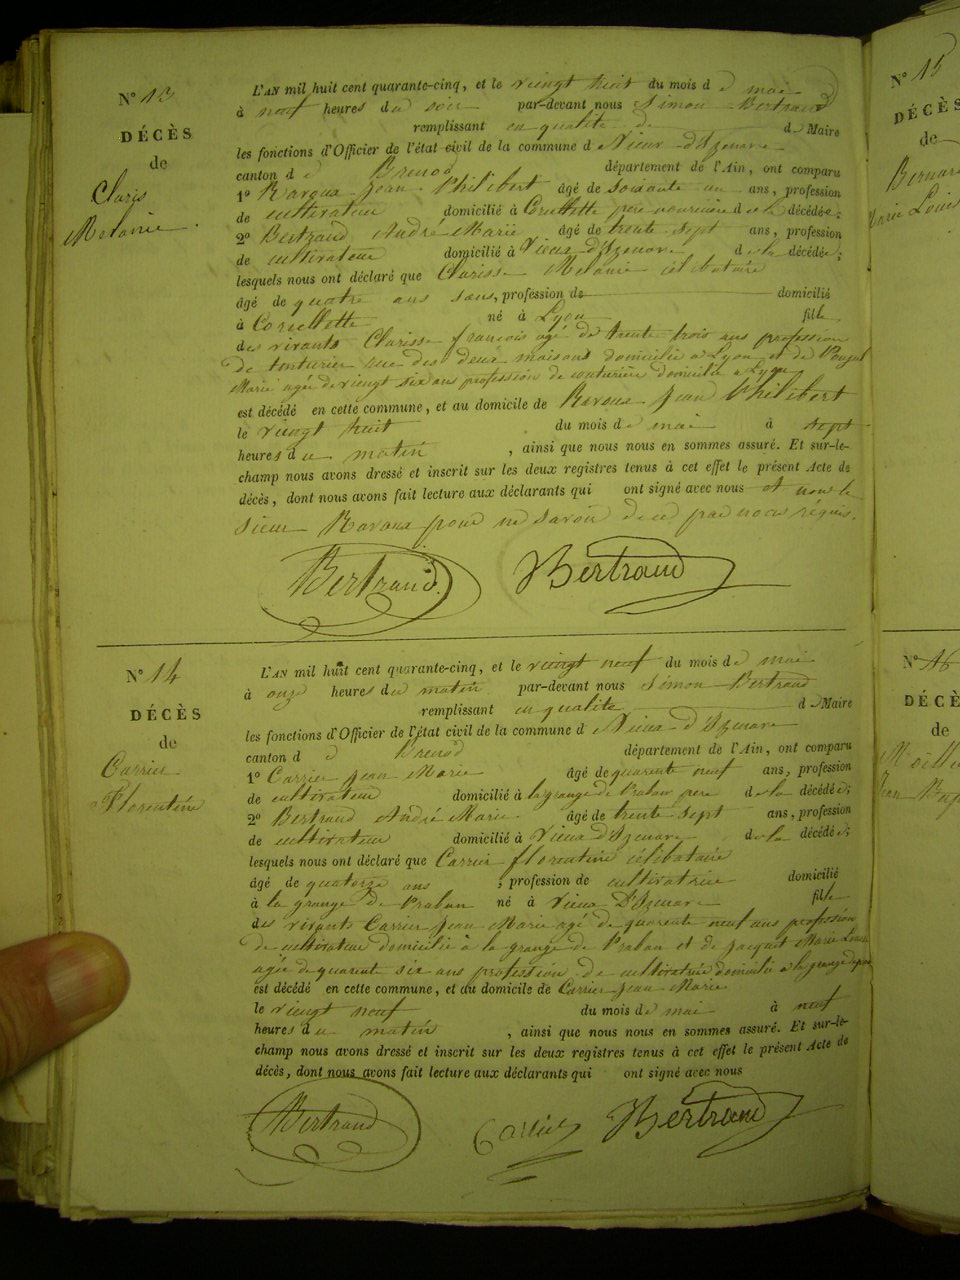 N° 13
DÉCÈS
de
Claris
Melanie.
L'AN mil huit cent quarante-cinq, et le vieingt huit du mois d e mai
à neuf heures du soir par-devant nous Simon Bertrand
remplissant en qualité de d e Maire
les fonctions d'Officier de l'état civil de la commune d e Vieux d'Izenave
canton d e Brenod département de l'Ain, ont comparu
1° Ravoux Jean Philibert âgé de soixante un ans, profession
de cultivateur domicilié à Corcellette pere nouricier d e la décédée;
2° Bertrand André Marie âgé de trente sept ans, profession
de cultivateur domicilié à Vieux d'Izenave d e la décédée;
lesquels nous ont déclaré que Clarisse Melanie célibataire
âgé de quatre ans sans, profession de domicilié
à Corcellette né à Lyon fille
des vivants Clarisse françois agé de trente trois ans profession
de tinturier rue des deux maisons domicilié a Lyon et de
Marie agée de vieingt six ans profession de couturière domicilié a Lyon
est décédé en cette commune, et au domicile de Ravoux Jean Philibert
le vieingt huit du mois de mai à sept
heures du matin, ainsi que nous nous en sommes assuré. Et sur-le-
champ nous avons dressé et inscrit sur les deux registres tenus à cet effet le présent Acte de
décès, dont nous avons fait lecture aux déclarants qui ont signé avec nous et non le
sieur Ravoux pour ne savoir de ce par nous réquis.
Bertrand Bertrand
N° 14
DÉCÈS
de
Carrier
Florentine
L'AN mil huit cent quarante-cinq, et le vieingt neuf du mois de mai
à onze heures du matin par-devant nous Simon Bertrand
remplissant en qualité d e Maire
les fonctions d'Officier de l'état civil de la commune d e Vieux d'Izenave
canton d e Brenod département de l'Ain, ont comparu
1° Carrier Jean Marie âgé de quarente neuf ans, profession
de cultivateur domicilié à la grange de Prabon pere d e la décédée;
2° Bertrand André Marie âgé de trente sept ans, profession
de cultivateur domicilié à Vieux d'Izenave d e la décédée;
lesquels nous ont déclaré que Carrier florentine célibataire
âgé de quatorze ans; profession de cultivatrice domicilié
à la grange de Prabon né à Vieux D'Izenave fille
des vivants Carrier Jean Marie agé de quarente neuf ans profession
de cultivateur domicilié à la grange de Prabon et de Jacquet Marie Louise
agée de quarente six ans profession de cultivatrice domicilié a la grange
est décédé en cette commune, et au domicile de Carrier Jean Marie
le vieingt neuf du mois de mai à neuf
heures du matin, ainsi que nous nous en sommes assuré. Et sur-le-
champ nous avons dressé et inscrit sur les deux registres tenus à cet effet le présent Acte de
décès, dont nous avons fait lecture aux déclarants qui ont signé avec nous
Bertrand Carrier Bertrand
N° 15
DÉCÈS
de
Bernar
Marie Louis
N° 16
DÉCÈ
de